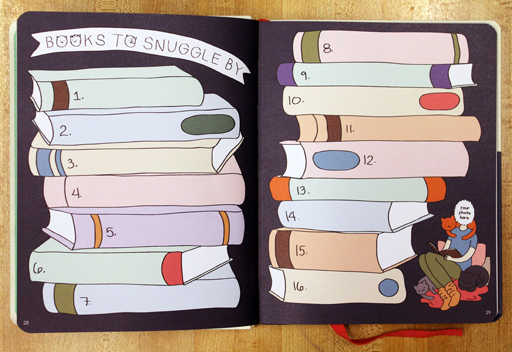 BOOKS TO SNUGGLE BY
1.
2.
3.
4.
5.
6.
7.
28
8.
9.
10.
11.
12.
13.
14.
15.
16.
your
photo
here
29